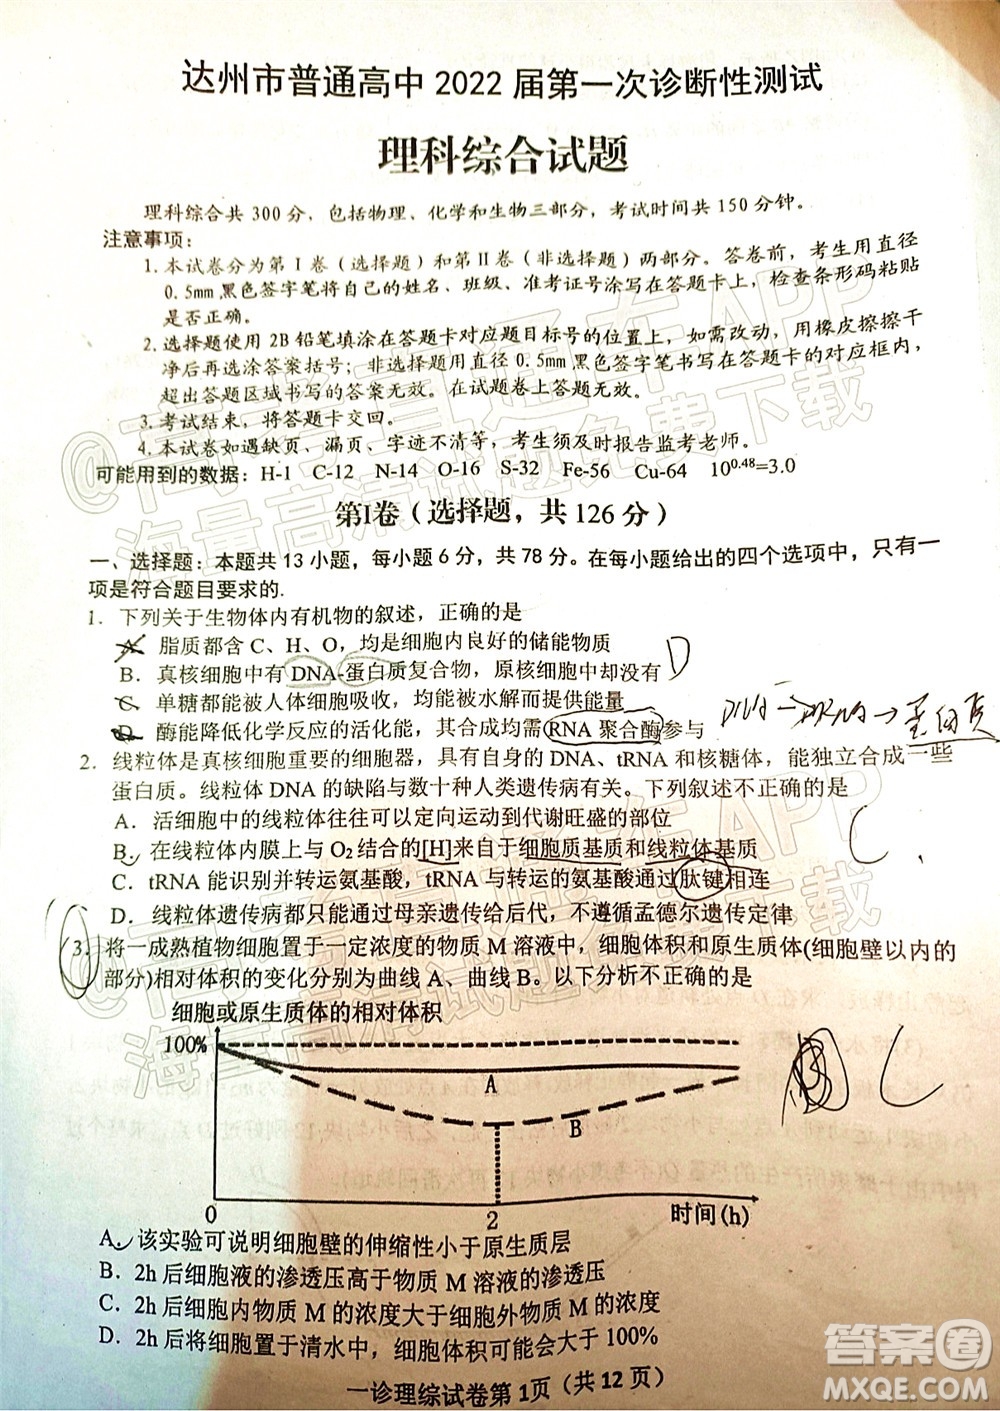 达州市普通高中 2022 届第一次诊断性测试
理科综合试题
理科综合共 300 分，包括物理、化学和生物三部分，考试时间共 150 分钟。
注意事项：
1. 本试卷分为第 I 卷（选择题）和第 II 卷（非选择题）两部分。答卷前，考生用直径
0.5mm 黑色签字笔将自己的姓名、班级、准考证号涂写在答题卡上，检查条形码粘贴
是否正确。
2. 选择题使用 2B 铅笔填涂在答题卡对应题目标号的位置上，如需改动，用橡皮擦擦干
净后再选涂答案括号；非选择题用直径 0.5mm 黑色签字笔书写在答题卡的对应框内，
超出答题区域书写的答案无效。在试题卷上答题无效。
3. 考试结束，将答题卡交回。
4. 本试卷如遇缺页、漏页、字迹不清等，考生须及时报告监考老师。
可能用到的数据：H-1 C-12 N-14 O-16 S-32 Fe-56 Cu-64 10^0.48=3.0
第I卷（选择题，共 126 分）
一、选择题：本题共 13 小题，每小题 6 分，共 78 分。在每小题给出的四个选项中，只有一
项是符合题目要求的.
1．下列关于生物体内有机物的叙述，正确的是
A．脂质都含 C、H、O，均是细胞内良好的储能物质
B．真核细胞中有 DNA-蛋白质复合物，原核细胞中却没有 D
C．单糖都能被人体细胞吸收，均能被水解而提供能量
D．酶能降低化学反应的活化能，其合成均需 RNA 聚合酶参与
DNA→mRNA→蛋白质
2．线粒体是真核细胞重要的细胞器，具有自身的 DNA、tRNA 和核糖体，能独立合成一些
蛋白质。线粒体 DNA 的缺陷与数十种人类遗传病有关。下列叙述不正确的是
A．活细胞中的线粒体往往可以定向运动到代谢旺盛的部位
C
B．在线粒体内膜上与 O2 结合的[H]来自于细胞质基质和线粒体基质
C．tRNA 能识别并转运氨基酸，tRNA 与转运的氨基酸通过肽键相连
D．线粒体遗传病都只能通过母亲遗传给后代，不遵循孟德尔遗传定律
3．将一成熟植物细胞置于一定浓度的物质 M 溶液中，细胞体积和原生质体(细胞壁以内的
部分)相对体积的变化分别为曲线 A、曲线 B。以下分析不正确的是
细胞或原生质体的相对体积
100%
A
B
C
0 2 时间(h)
A．该实验可说明细胞壁的伸缩性小于原生质层
B．2h 后细胞液的渗透压高于物质 M 溶液的渗透压
C．2h 后细胞内物质 M 的浓度大于细胞外物质 M 的浓度
D．2h 后将细胞置于清水中，细胞体积可能会大于 100%
一诊理综试卷第 1页（共 12 页）
@高考直通车APP
海量高清试题免费下载
@高考直通车APP
海量高清试题免费下载
答案圈
MXQE.COM